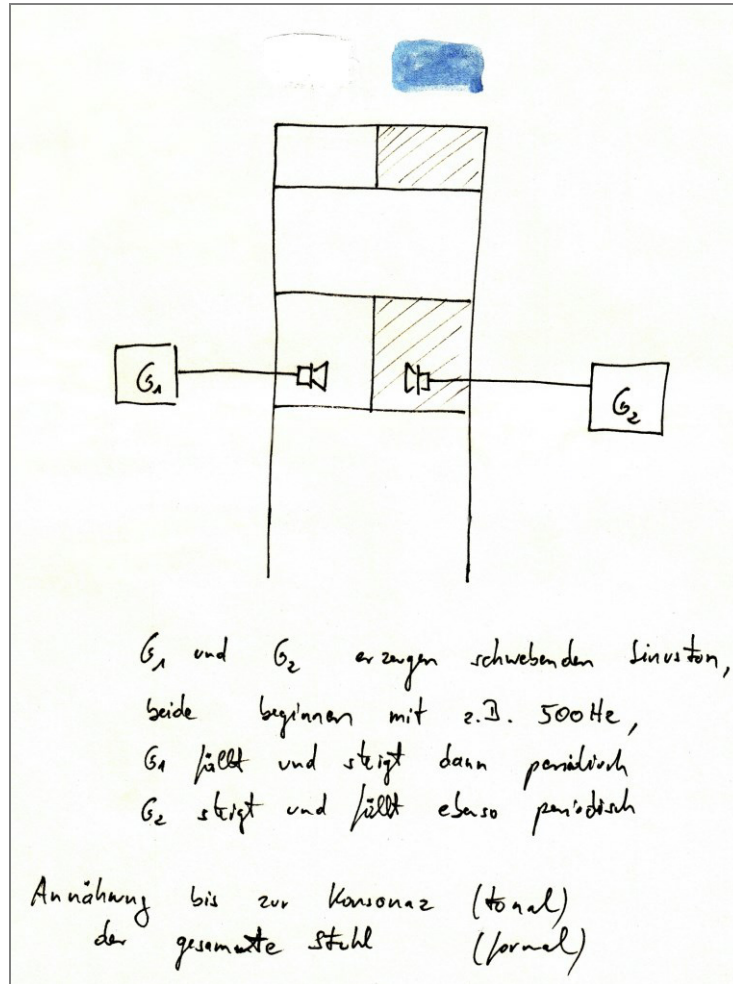 G1
G2
G1 und G2 erzeugen schwebenden Sinuston,
beide beginnen mit z.B. 500 Hz,
G1 fällt und steigt dann periodisch
G2 steigt und fällt ebenso periodisch
Annähung bis zur Konsonaz (tonal)
der gesammte Stuhl (formal)